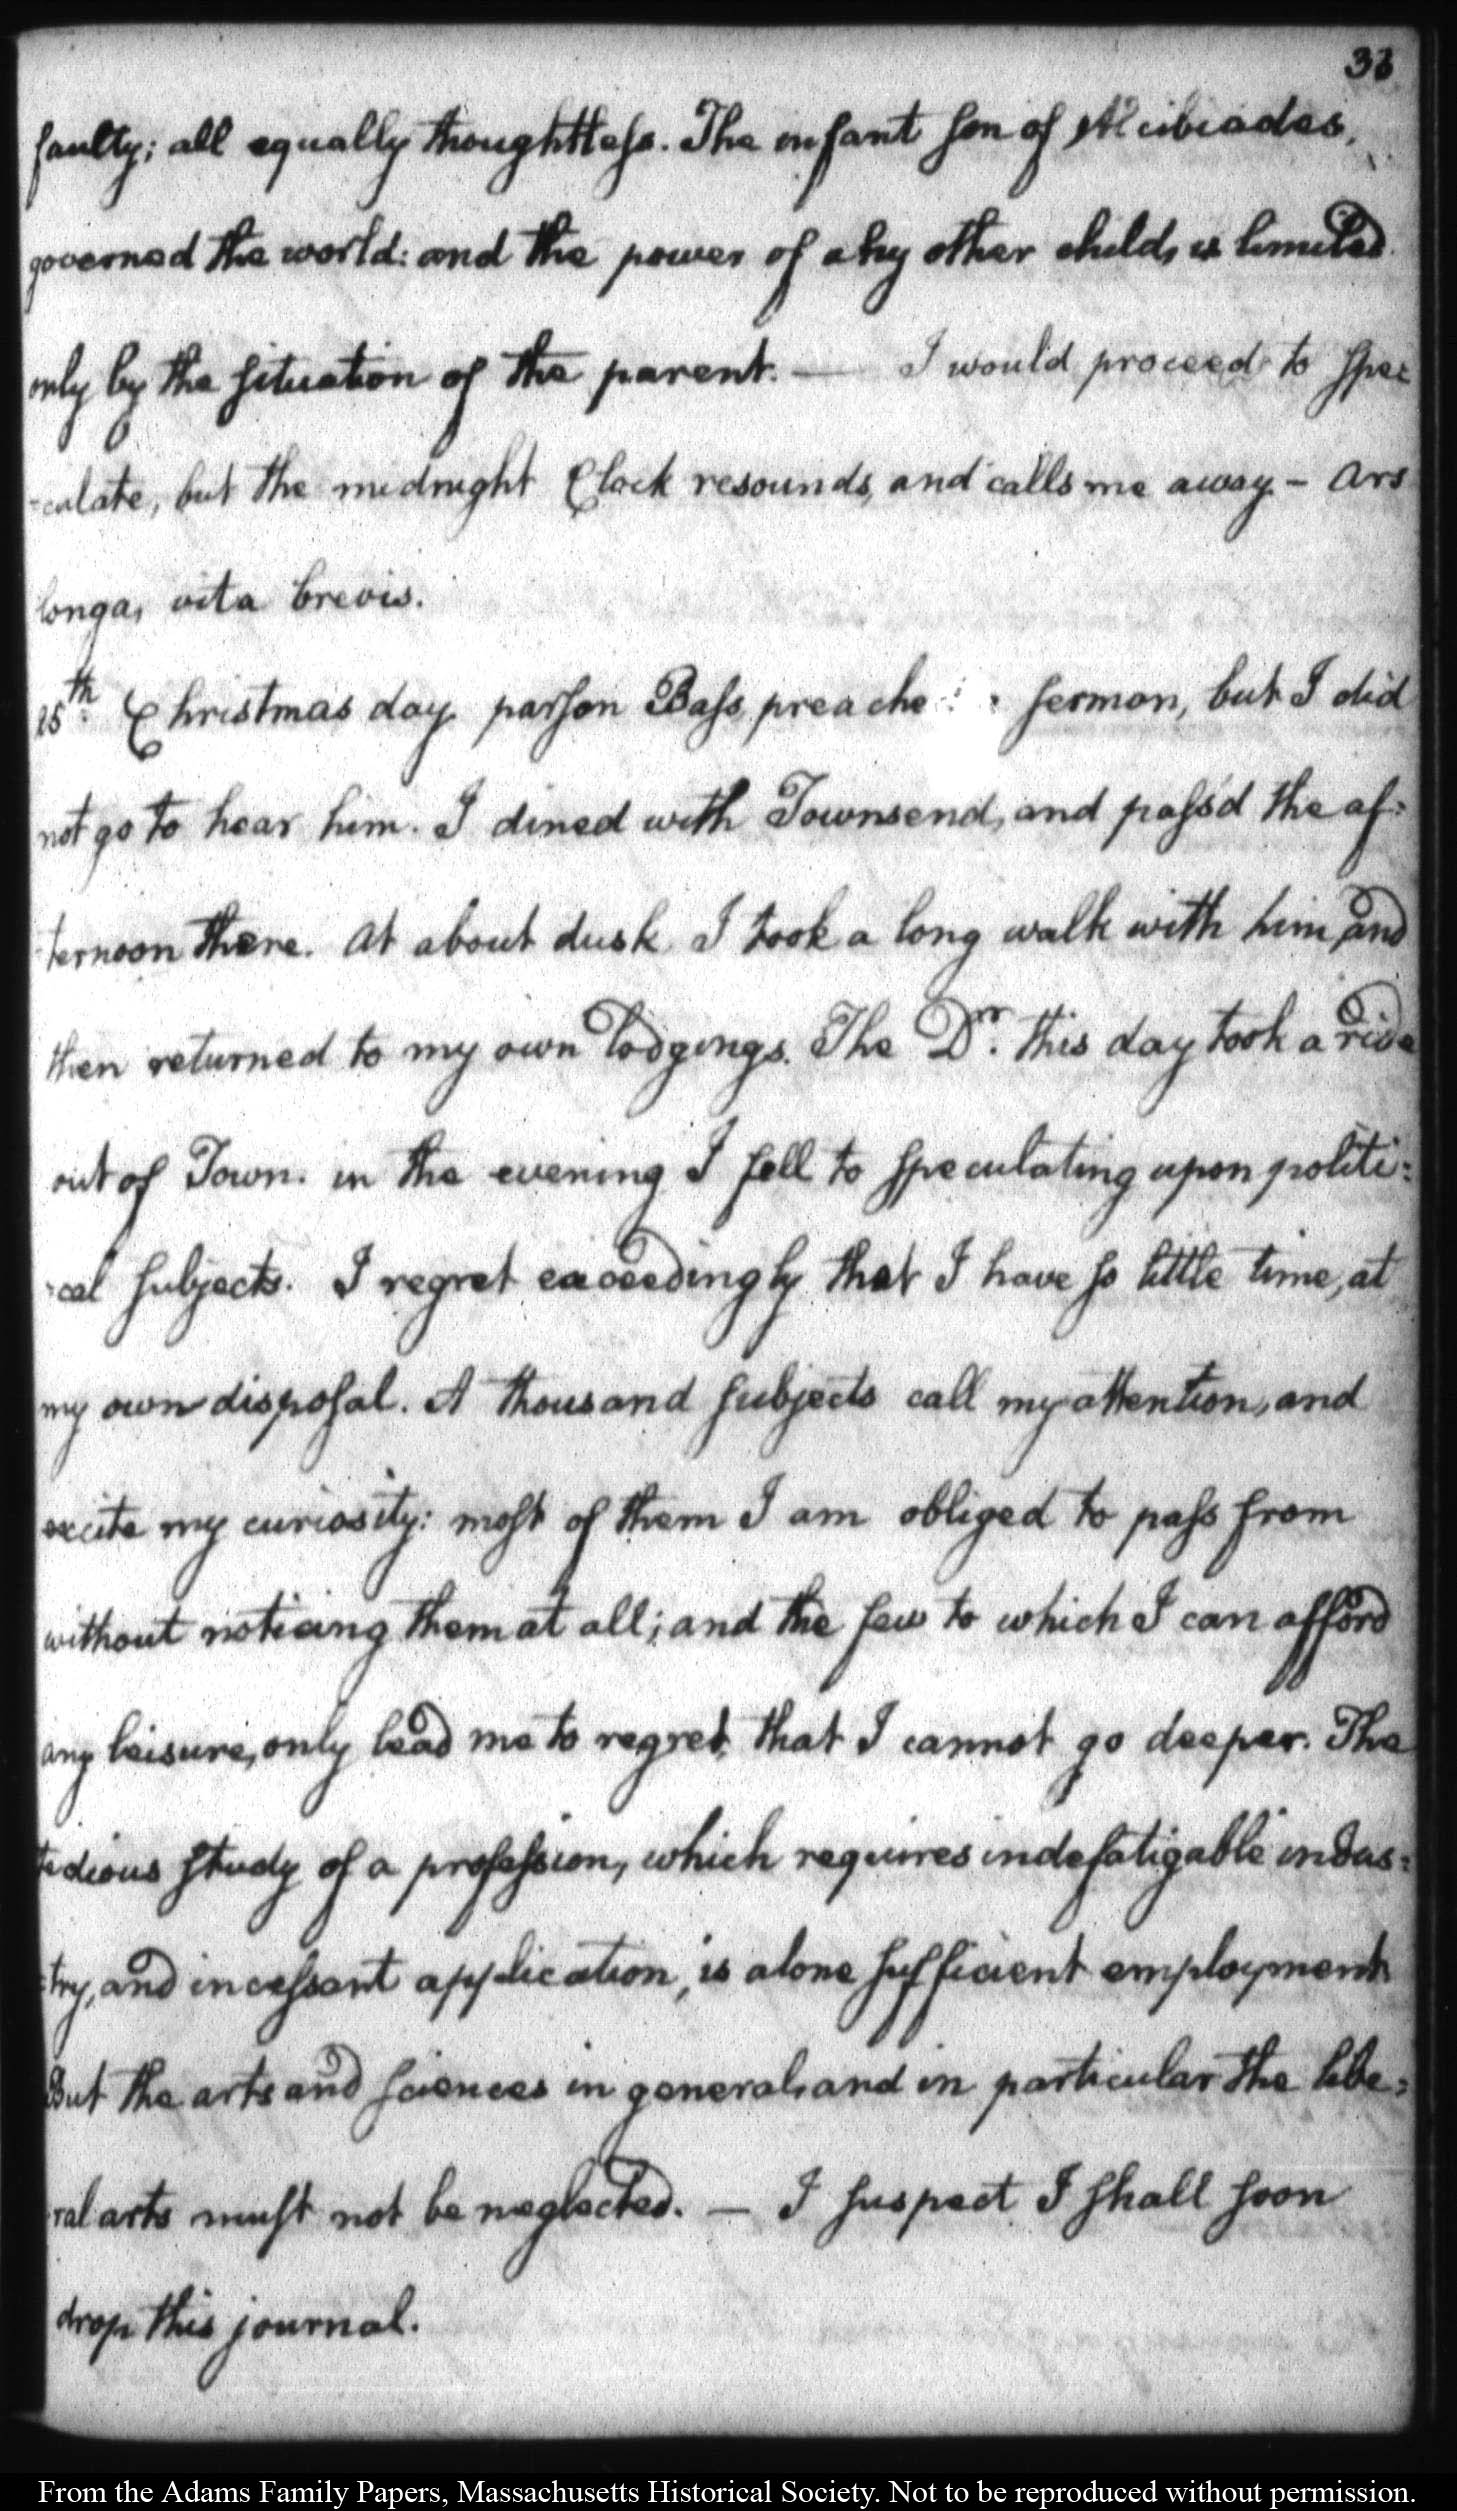 33
faulty; all equally thoughtless. The infant son of Alcibiades,
governed the world: and the power of any other child, is limited
only by the situation of the parent. — I would proceed to spe=
=culate, but the midnight Clock resounds, and calls me away. — Ars
longa, vita brevis.
25th. Christmas day. parson Bass preache sermon, but I did
not go to hear him. I dined with Townsend, and pass'd the af=
=ternoon there. At about dusk I took a long walk with him, and
then returned to my own lodgings. The Dr. this day took a ride
out of Town. in the evening I fell to speculating upon politi=
=cal subjects. I regret exceedingly that I have so little time, at
my own disposal. A thousand subjects call my attention, and
excite my curiosity: most of them I am obliged to pass from
without noticing them at all; and the few to which I can afford
any leisure, only lead me to regret, that I cannot go deeper. The
tedious study of a profession, which requires indefatigable indus=
=try, and incessant application, is alone sufficient employment.
But the arts and sciences in general, and in particular the libe=
ral arts must not be neglected. — I suspect I shall soon
drop this journal.
From the Adams Family Papers, Massachusetts Historical Society. Not to be reproduced without permission.